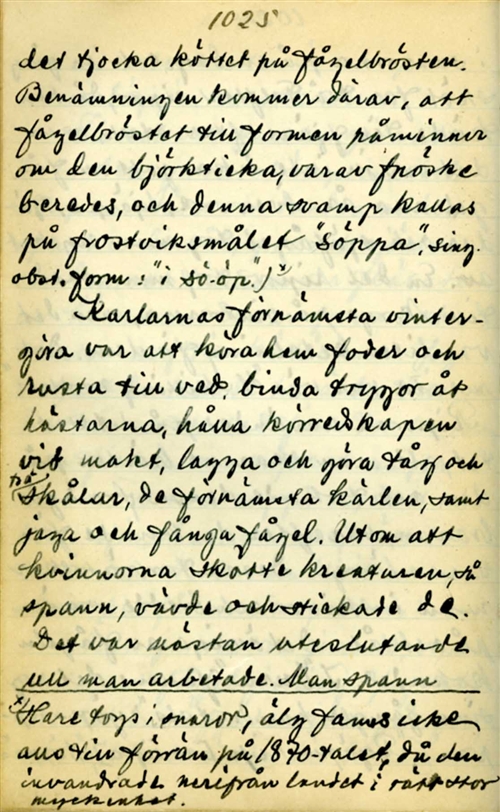 1025
det tjocka köttet på fågelbrösten.
Benämningen kommer därav, att
fågelbröstet till formen påminner
om den björkticka, varav fnöske
beredes, och denna svamp kallas
på frostviksmålet "söppa", sing.
obst. form: "i sö-öp".) x
Karlarnas förnämsta vinter-
göra var att köra hem foder och
rusta till ved, binda tryggor åt
hästarna, hålla körredskapen
vid makt, lagga och göra tåg och
trä
skålar, de förnämsta kärlen, samt
jaga och fånga fågel. Utom att
kvinnorna skötte kreaturen, så
spann, vävde och stickade de.
Det var nästan uteslutande
ull man arbetade. Man spann
x Hare togs i snaror, älg fanns icke
alls till förrän på 1870-talet, då den
invandrade nerifrån landet i rätt stor
myckenhet.